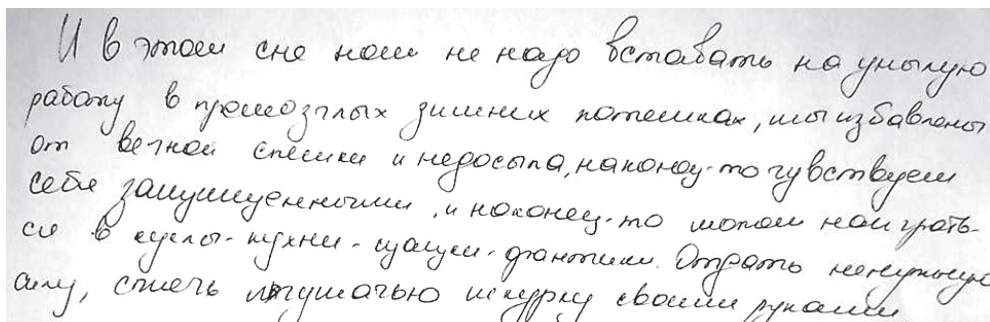 И в этом сне нам не надо вставать на унылую
работу в промозглых зимних потемках, мы избавлены
от вечной спешки и недосыпа, наконец-то чувствуем
себя защищенными, и наконец-то можем наиграть-
ся в куклы-кухни-машинки-фантики. Отдать ненужную
силу, сжечь лягушачью шкурку своими руками